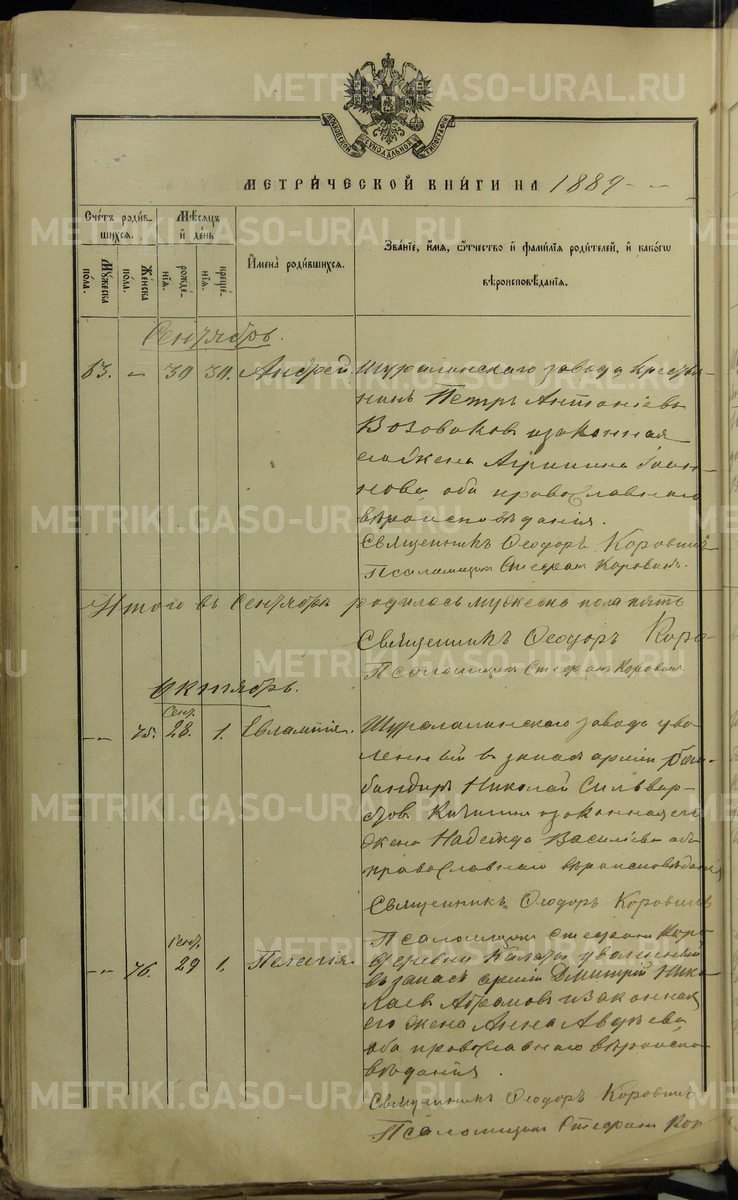 METRIKI.GASO-URAL.RU
МОСКОВСКОЙ СѴНОДАЛЬНОЙ ТИПОГРАФІИ
МЕТРИ́ЧЕСКОЙ КНИ́ГИ НА 1889
Сче́тъ роди́вшихся.
Мѣ́сяцъ и҆ де́нь
Мꙋ́жеска по́ла.
Же́нска по́ла.
рожде́нїѧ.
креще́нїѧ.
И҆мена̀ роди́вшихсѧ.
Зва́нїе, и҆́мѧ, ѻ҆́тчество и҆ фами́лїѧ роди́телей, и҆ како́гѡ вѣроисповѣ́данїѧ.
Сентябрь.
63. – 30 30. Андрей
Шуралинскаго завода крестья-
нинъ Петръ Антоніевъ
и законная
его жена Агрипина Іоан-
нова, оба православнаго
вѣроисповѣданія.
Священникъ Ѳеодоръ Коровинъ
Псаломщикъ Стефанъ Коровинъ.
Итого въ Сентябрѣ родилось мужеска пола пять
Священникъ Ѳеодоръ Коро-
Псаломщикъ Стефанъ Коровинъ.
Октябрь.
– – 75. Сент. 28. 1. Евлампія.
Шуралинскаго завода уво-
ленный въ запасъ арміи бом-
бандиръ Николай Сильвер-
стовъ и законная его
жена Надежда Васильева оба
православнаго вѣроисповѣданія
Священникъ Ѳеодоръ Коровинъ
Псаломщикъ Стефанъ Коро-
– – 76. Сент. 29 1. Пелагія.
деревни Калаты уволенный
въ запасъ арміи Дмитрій Нико-
лаевъ Абрамовъ и законная
его жена Анна Авдѣева,
оба православнаго вѣроиспо-
вѣданія.
Священникъ Ѳеодоръ Коровинъ
Псаломщикъ Стефанъ Кор